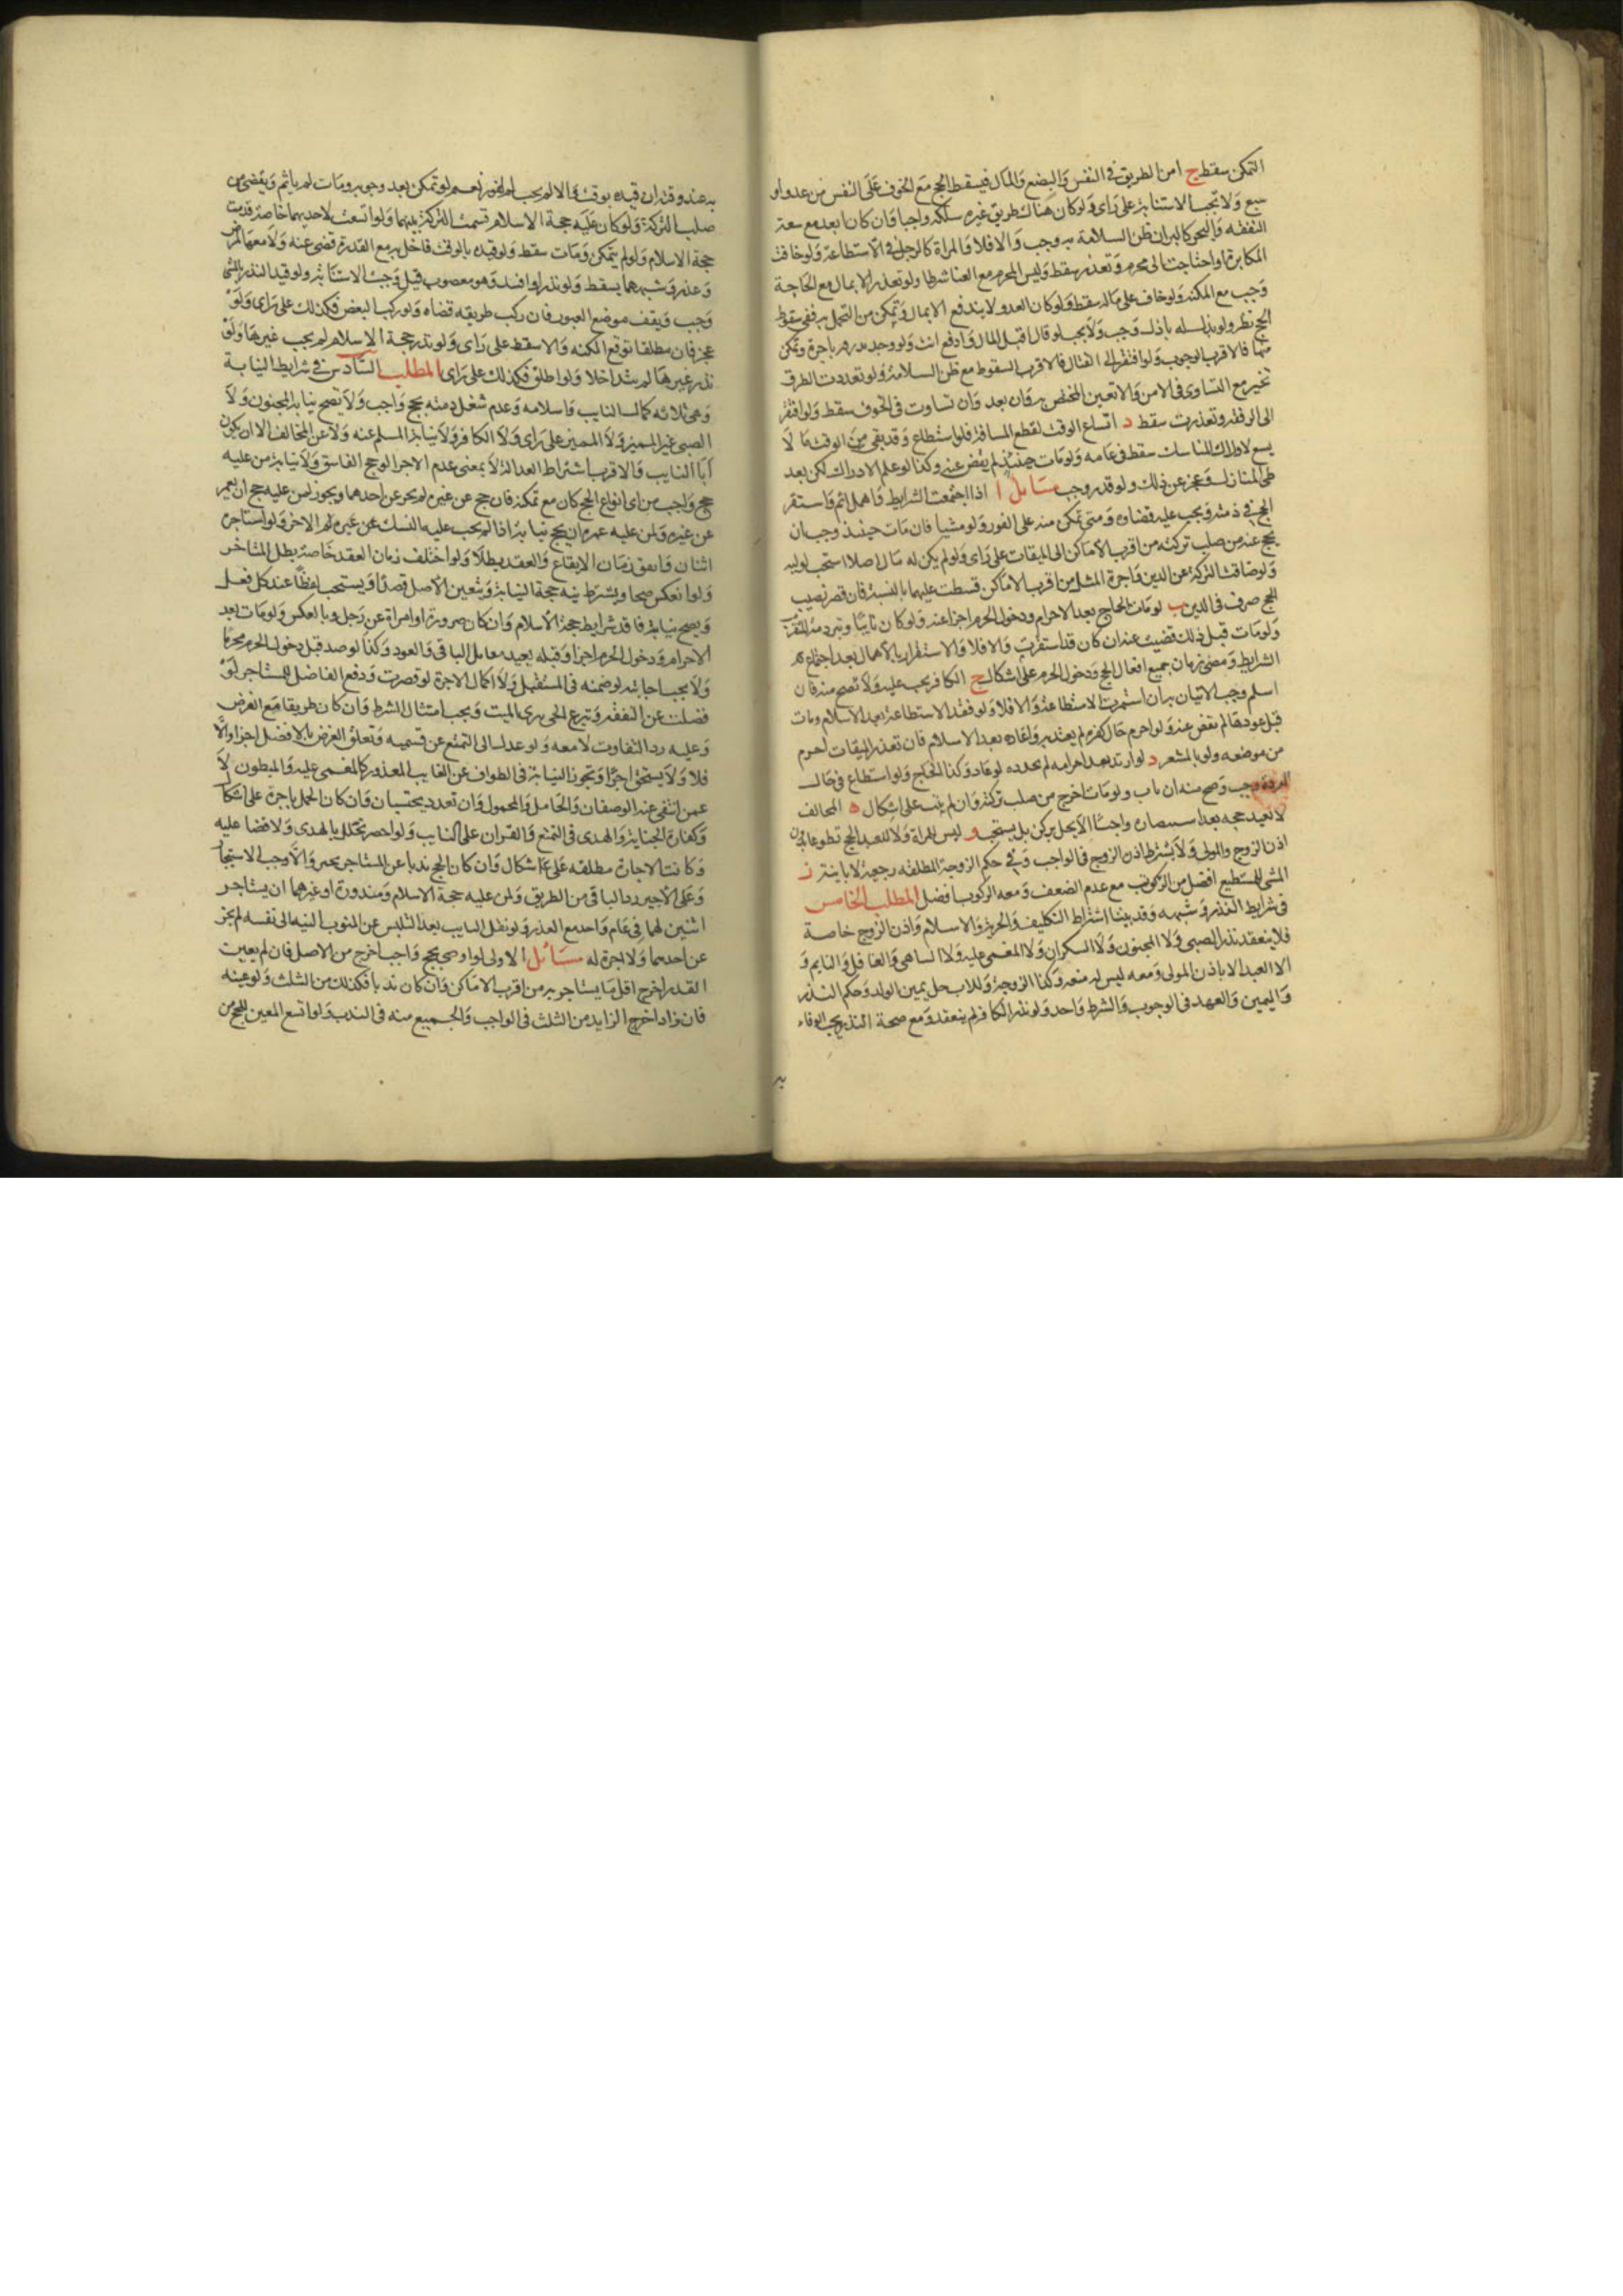 التمكن سقط ج امن الطريق في النفس والبضع والمال فيسقط الحج مع الخوف على النفس من عدو او
سبع ولا تجب الاستنابة على راى ولو كان هناك طريق غيره سلكه واجبا وان كان ابعد مع سعة
النفقه والبحر كالبر ان ظن السلامة به وجب والا فلا والمراة كالرجل في الاستطاعة ولو خافت
المكابرة او احتاجت الى محرم وتعذر سقط وليس المحرم مع الغنا شرطا ولو تعذر الا بمال مع الحاجة
وجب مع المكنه ولو خاف على ماله سقط ولو كان العدو لا يندفع الا بمال وتمكن من التحمل به ففى سقوط
الحج نظر ولو بذل له باذل وجب ولا يجب لو قال اقبل المال وادفع انت ولو وجد بدرهم باجرة وتمكن
منها فالاقرب الوجوب ولو افتقر الى القتال فالاقرب السقوط مع ظن السلامة ولو تعددت الطرق
تخير مع التساوى في الامن والا تعين المختص به وان بعد وان تساوت في الخوف سقط ولو افتقر
الى الرفقه وتعذرت سقط د اتساع الوقت لقطع المسافة فلو استطاع وقد بقى من الوقت ما لا
يسع لادراك المناسك سقط في عامه ولو مات حينئذ لم يقض عنه وكذا لو علم الادراك لكن بعد
طى المنازل وعجز عن ذلك ولو قدر وجب مسائل ا اذا اجتمعت الشرايط فاهمل اثم واستقر
الحج في ذمته ويجب عليه قضاؤه ومتى تمكن منه على الفور ولو مشيا فان مات حينئذ وجب ان
يحج عنه من صلب تركته من اقرب الاماكن الى الميقات على راى ولو لم يكن له مال اصلا استحب لوليه
ولو ضاقت التركة عن الدين واجرة المثل من اقرب الاماكن قسطت عليهما بالنسبة فان قصر نصيب
الحج صرف في الدين ب لو مات الحاج بعد الاحرام ودخول الحرم اجزا عنه ولو كان نايبا وتبرء ذمة
ولو مات قبل ذلك قضيت عنه ان كان قد استقرت والا فلا والاستقرار بالاهمال بعد اجتماع
الشرايط ومضى زمان جميع افعال الحج ودخول الحرم على اشكال ج الكافر يجب عليه ولا تصح منه فان
اسلم وجب الاتيان به ان استمرت الاستطاعة والا فلا ولو فقد الاستطاعة بعد الاسلام ومات
قبل عودها لم يقض عنه ولو احرم حال كفره لم يعتد به واعاده بعد الاسلام فان تعذر الميقات احرم
من موضعه ولو بالمشعر د لو ارتد بعد احرامه لم يجدده لو عاد وكذا الحاج ولو استطاع في حال
الردة وجب وصح منه ان تاب ولو مات اخرج من صلب تركته وان لم يتب على اشكال ه المخالف
لا يعيد حجه بعد استبصاره واجبا الا يخل بركن بل يستحب و ليس للمراة ولا للعبد الحج تطوعا بدون
اذن الزوج والمولى ولا يشترط اذن الزوج في الواجب وفى حكم الزوجة المطلقة رجعية لا باينة ز
المشى للمستطيع افضل من الركوب مع عدم الضعف ومعه الركوب افضل المطلب الخامس
في شرايط النذر وشبهه وقد بينا اشتراط التكليف والحرية والاسلام واذن الزوج خاصة
فلا ينعقد نذر الصبى ولا المجنون ولا السكران ولا المغمى عليه ولا الساهى والغافل والنايم و
لا العبد الا باذن المولى ومعه ليس له منعه وكذا الزوجة وللاب حل يمين الولد وحكم النذر
واليمين والعهد في الوجوب والشرط واحد ولو نذر الكافر لم ينعقد ومع صحة النذر يجب الوفاء
به
به عند وقته ان قيده بوقت والا لم يجب الفور نعم لو تمكن بعد وجوبه ومات لم ياثم ويقضى من
صلب التركة ولو كان عليه حجة الاسلام قسمت التركة بينهما ولو اتسعت لاحديهما خاصة قدمت
حجة الاسلام ولو لم يتمكن ومات سقط ولو قيده بالوقت فاخل به مع القدرة قضى عنه ولا معها لمرض
وعذر وشبههما يسقط ولو نذر او افسد وهو معضوب قيل وجبت الاستنابة ولو قيد النذر بالمشى
وجب ويقف موضع العبور فان ركب طريقه قضاه ولو ركب البعض فكذلك على راى ولو
عجز فان مطلقا توقع المكنه والا سقط على راى ولو نذر حجة الاسلام لم يجب غيرها ولو
نذر غيرها لم يتداخلا ولو اطلق فكذلك على راى المطلب السادس في شرايط النيابة
وهى ثلاثه كمال النايب واسلامه وعدم شغل ذمته بحج واجب ولا يصح نيابة المجنون ولا
الصبى غير المميز ولا المميز على راى ولا الكافر ولا نيابة المسلم عنه ولا عن المخالف الا ان يكون
ابا النايب والاقرب اشتراط العدالة لا بمعنى عدم الاجزا لو حج الفاسق ولا نيابة من عليه
حج واجب من اى انواع الحج كان مع تمكنه فان حج عن غيره لم يجز عن احدهما ويجوز لمن عليه حج ان يعتمر
عن غيره ولمن عليه عمرة ان يحج نيابة اذا لم يجب عليه النسك عن غيره الاخر ولو استاجره
اثنان واتفق زمان الايقاع والعقد بطلا ولو اختلف زمان العقد خاصة بطل المتاخر
ولو انعكس صحا ويشترط نية حجة النيابة وتعيين الاصل قصدا ويستحب لفظا عند كل فعل
ويصح نيابة فاقد شرايط حجة الاسلام وان كان صرورة او امراة عن رجل وبالعكس ولو مات بعد
الاحرام ودخول الحرم اجزا وقبله يعيد مقابل الباقى والعود وكذا لو صد قبل دخول الحرم محرما
ولا يجب اجابته لو ضمنه في المستقبل ولا اكمال الاجرة لو قصرت ودفع الفاضل للمستاجر لو
فضلت عن النفقه وتبرع الحى يبرى الميت ويجب امتثال الشرط وان كان طريقا مع الغرض
وعليه رد التفاوت لا معه ولو عدل الى التمتع عن قسيميه وتعلق الغرض بالافضل اجزا والا
فلا ولا يستحق اجرا ويجوز النيابة في الطواف عن الغايب المعذور كالمغمى عليه والمبطون لا
عمن انتفى عنه الوصفان والحامل والمحمول وان تعدد يحتسبان وان كان الحمل باجرة على اشكال
وكفارة الجناية والهدى في التمتع والقران على النايب ولو احصر تحلل بالهدى ولا قضا عليه
وكانت الاجارة مطلقه على اشكال وان كان الحج ندبا عن المستاجر والا وجب الاستيجار
وعلى الاجير رد الباقى من الطريق ولمن عليه حجة الاسلام ومنذورة او غيرهما ان يستاجر
اثنين لهما في عام واحد مع العذر ولو نقل النايب بعد التلبس عن المنوب النيه الى نفسه لم يجز
عن احدهما ولا اجرة له مسائل الاولى لو اوصى بحج واجب اخرج من الاصل فان لم يعين
القدر اخرج اقل ما يستاجر به من اقرب الاماكن وان كان ندبا فكذلك من الثلث ولو عينه
فان زاد اخرج الزايد من الثلث في الواجب والجميع منه في الندب ولو اتسع المعين للحج من